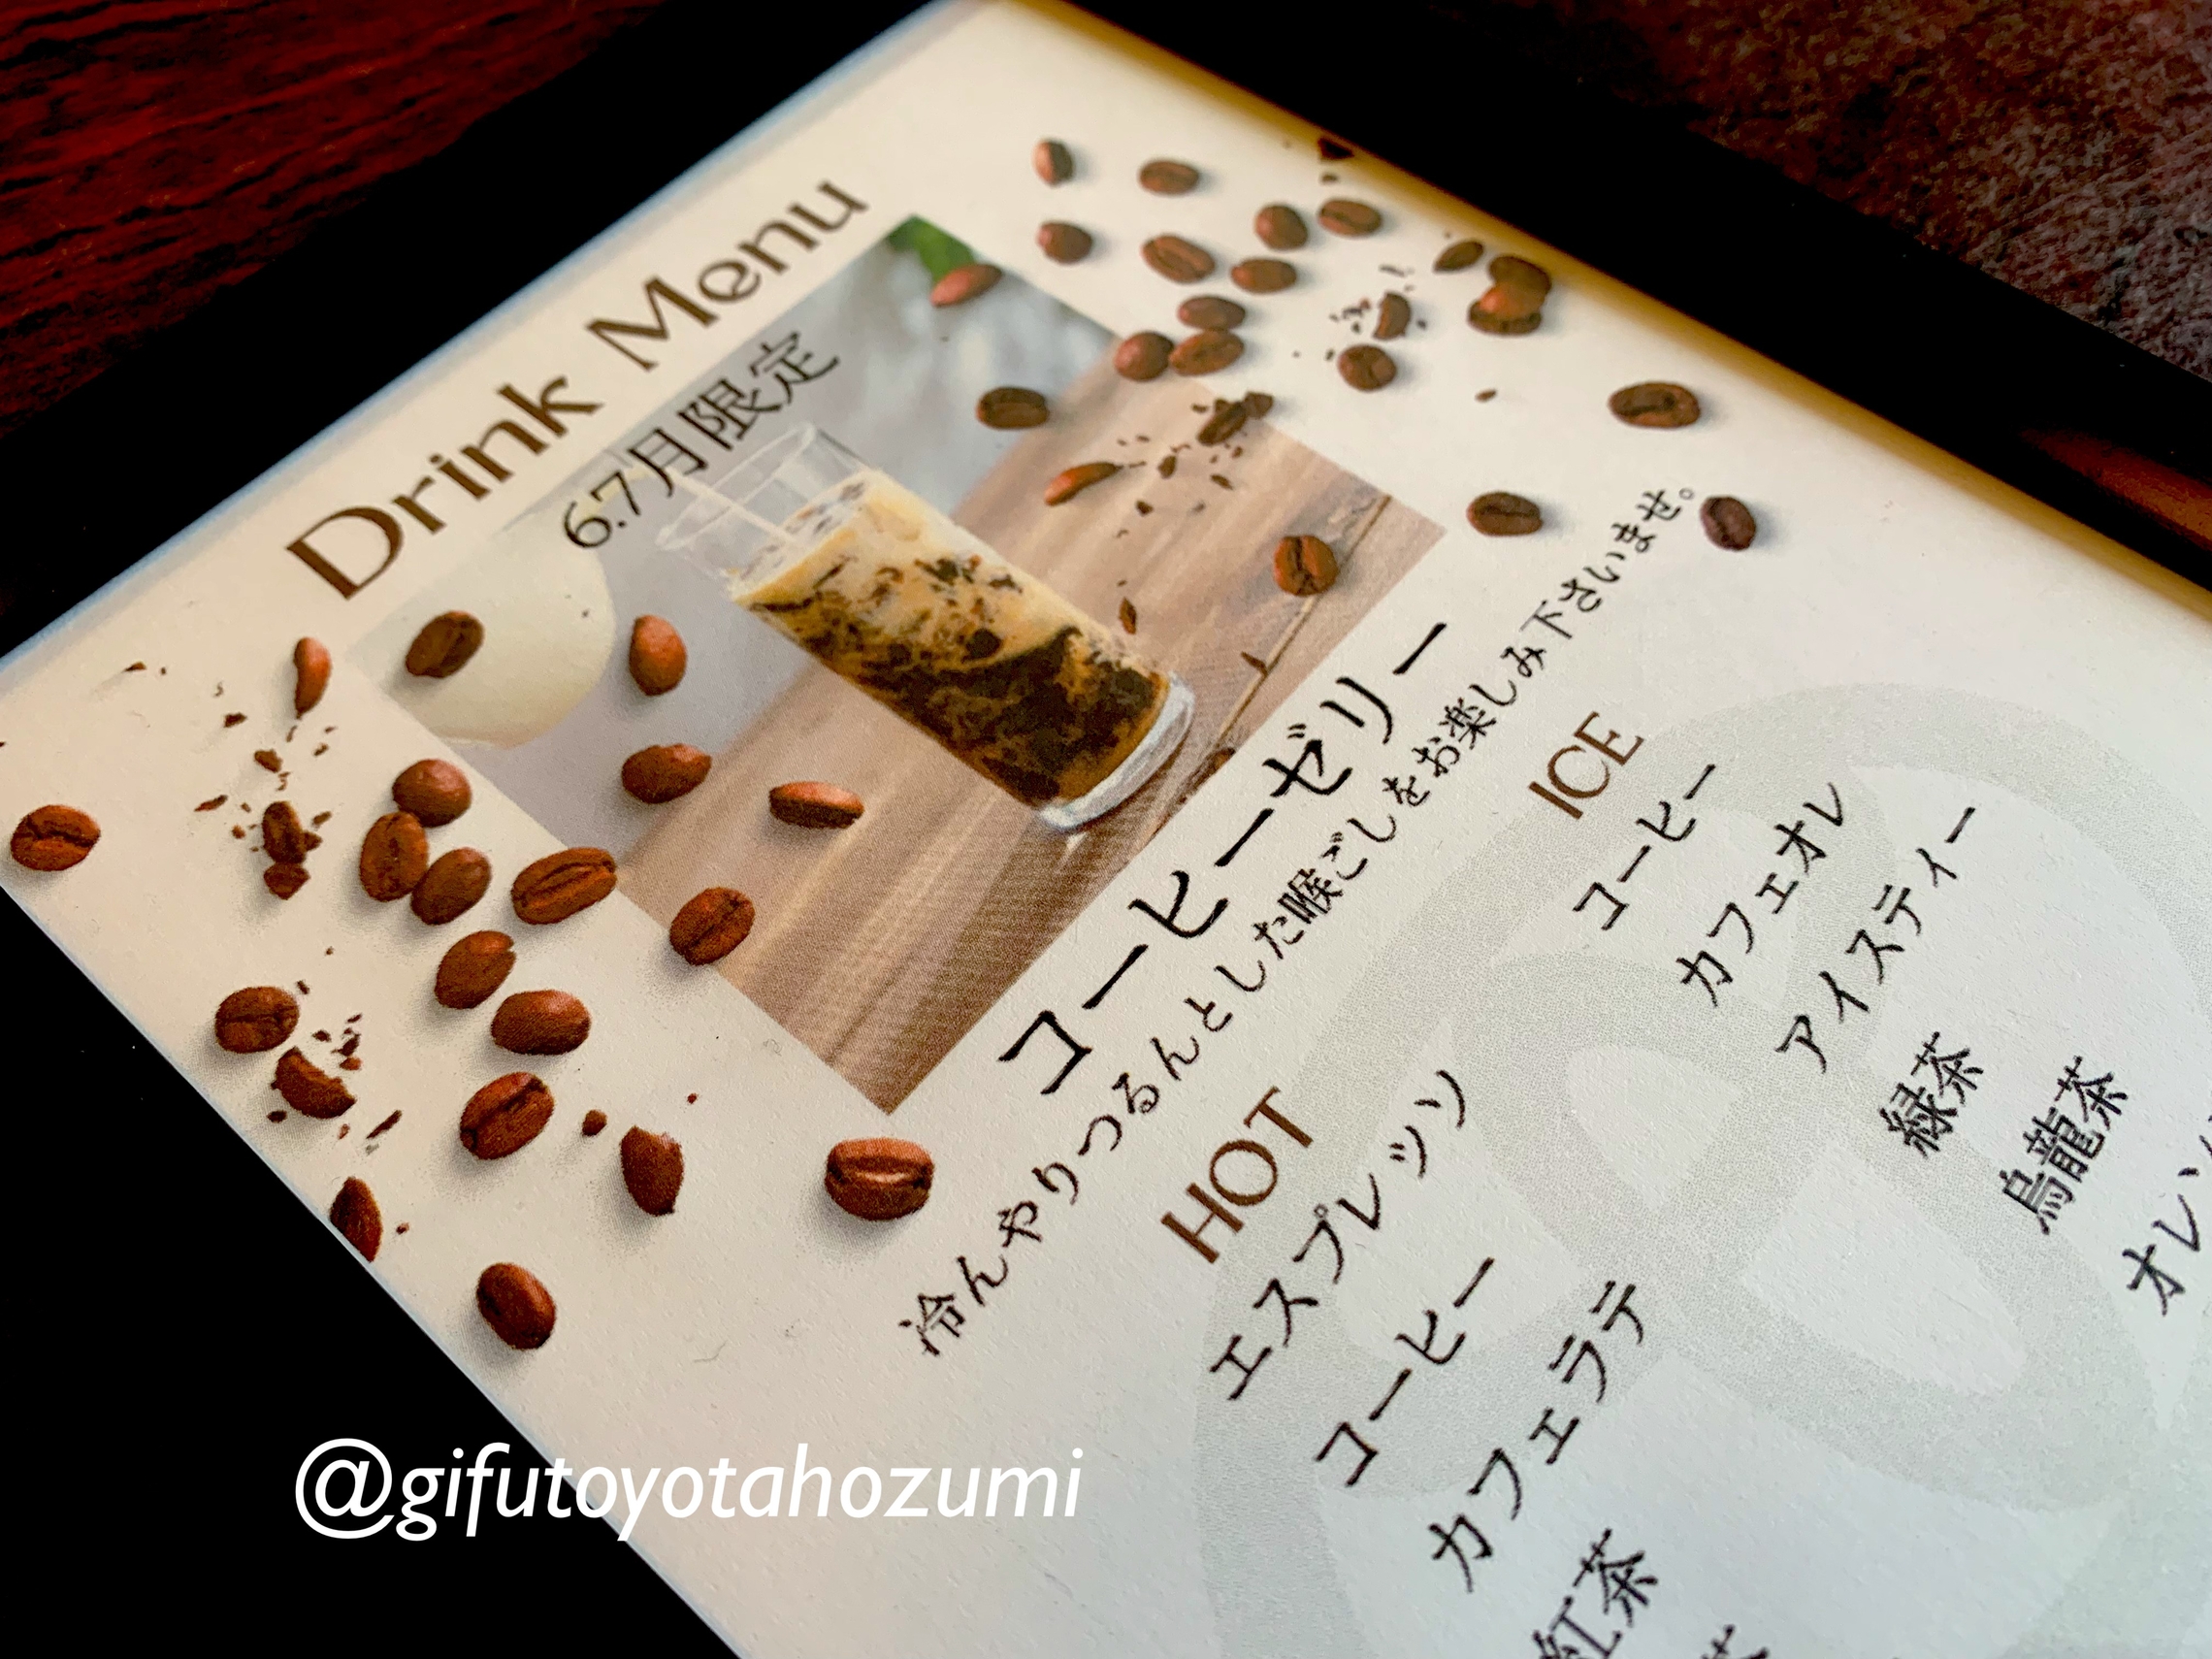 Drink Menu
6.7月限定
コーヒーゼリー
冷んやりつるんとした喉ごしをお楽しみ下さいませ。
HOT
エスプレッソ
コーヒー
カフェラテ
紅茶
ICE
コーヒー
カフェオレ
アイスティー
緑茶
烏龍茶
オレン
@gifutoyotahozumi